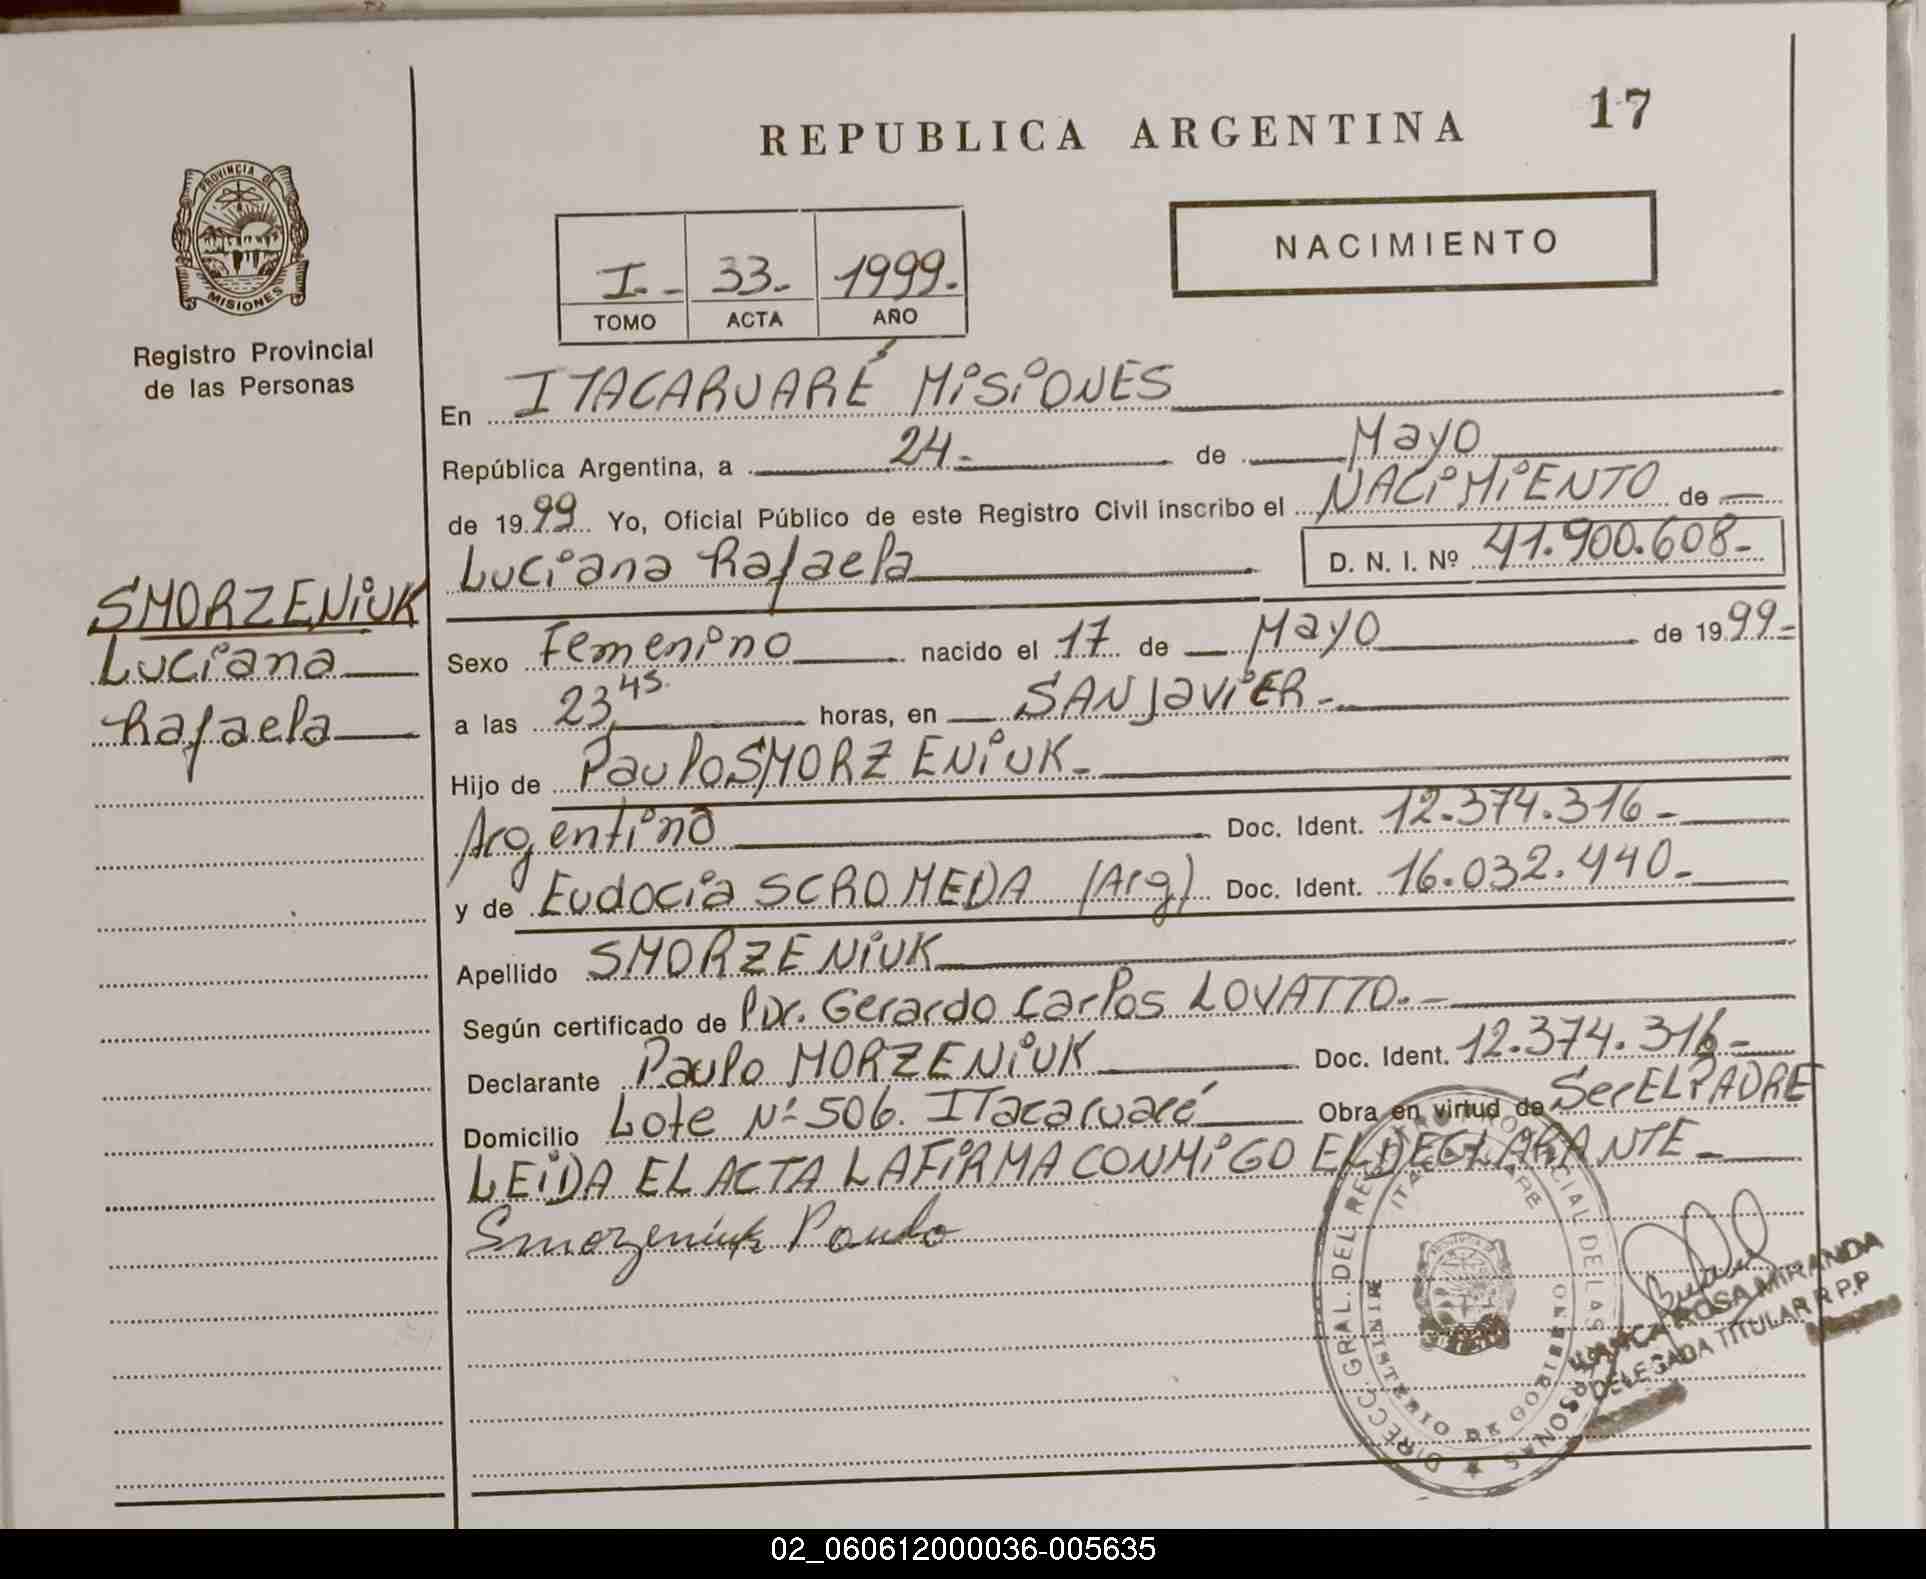 REPUBLICA ARGENTINA 17
PROVINCIA DE
MISIONES
Registro Provincial
de las Personas
I.- 33.- 1999.-
TOMO ACTA AÑO
NACIMIENTO
En ITACARUARÉ MISIONES
República Argentina, a 24.- de Mayo
de 1999 Yo, Oficial Público de este Registro Civil inscribo el NACIMIENTO de
Luciana Rafaela D. N. I. Nº 41.900.608-
SMORZENIUK
Luciana
Rafaela
Sexo Femenino nacido el 17 de Mayo de 1999-
a las 23,45. horas, en SAN JaviER.-
Hijo de Paulo SMORZENIUK.-
Argentino Doc. Ident. 12.374.316-
y de Eudocia SCROMEDA (Arg) Doc. Ident. 16.032.440-
Apellido SMORZENIUK
Según certificado de Dr. Gerardo Carlos LOVATTO.-
Declarante Paulo MORZENIUK Doc. Ident. 12.374.316-
Domicilio Lote Nº 506. ITacaruaré Obra en virtud de Ser EL PADRE
LEIDA EL ACTA LA FIRMA CONMIGO EL DECLARANTE-
Smorzeniuk Paulo
DIRECC. GRAL. DEL REGISTRO PROVINCIAL DE LAS PERSONAS
MINISTERIO DE GOBIERNO
ROSA MIRANDA
DELEGADA TITULAR R.P.P
02_060612000036-005635